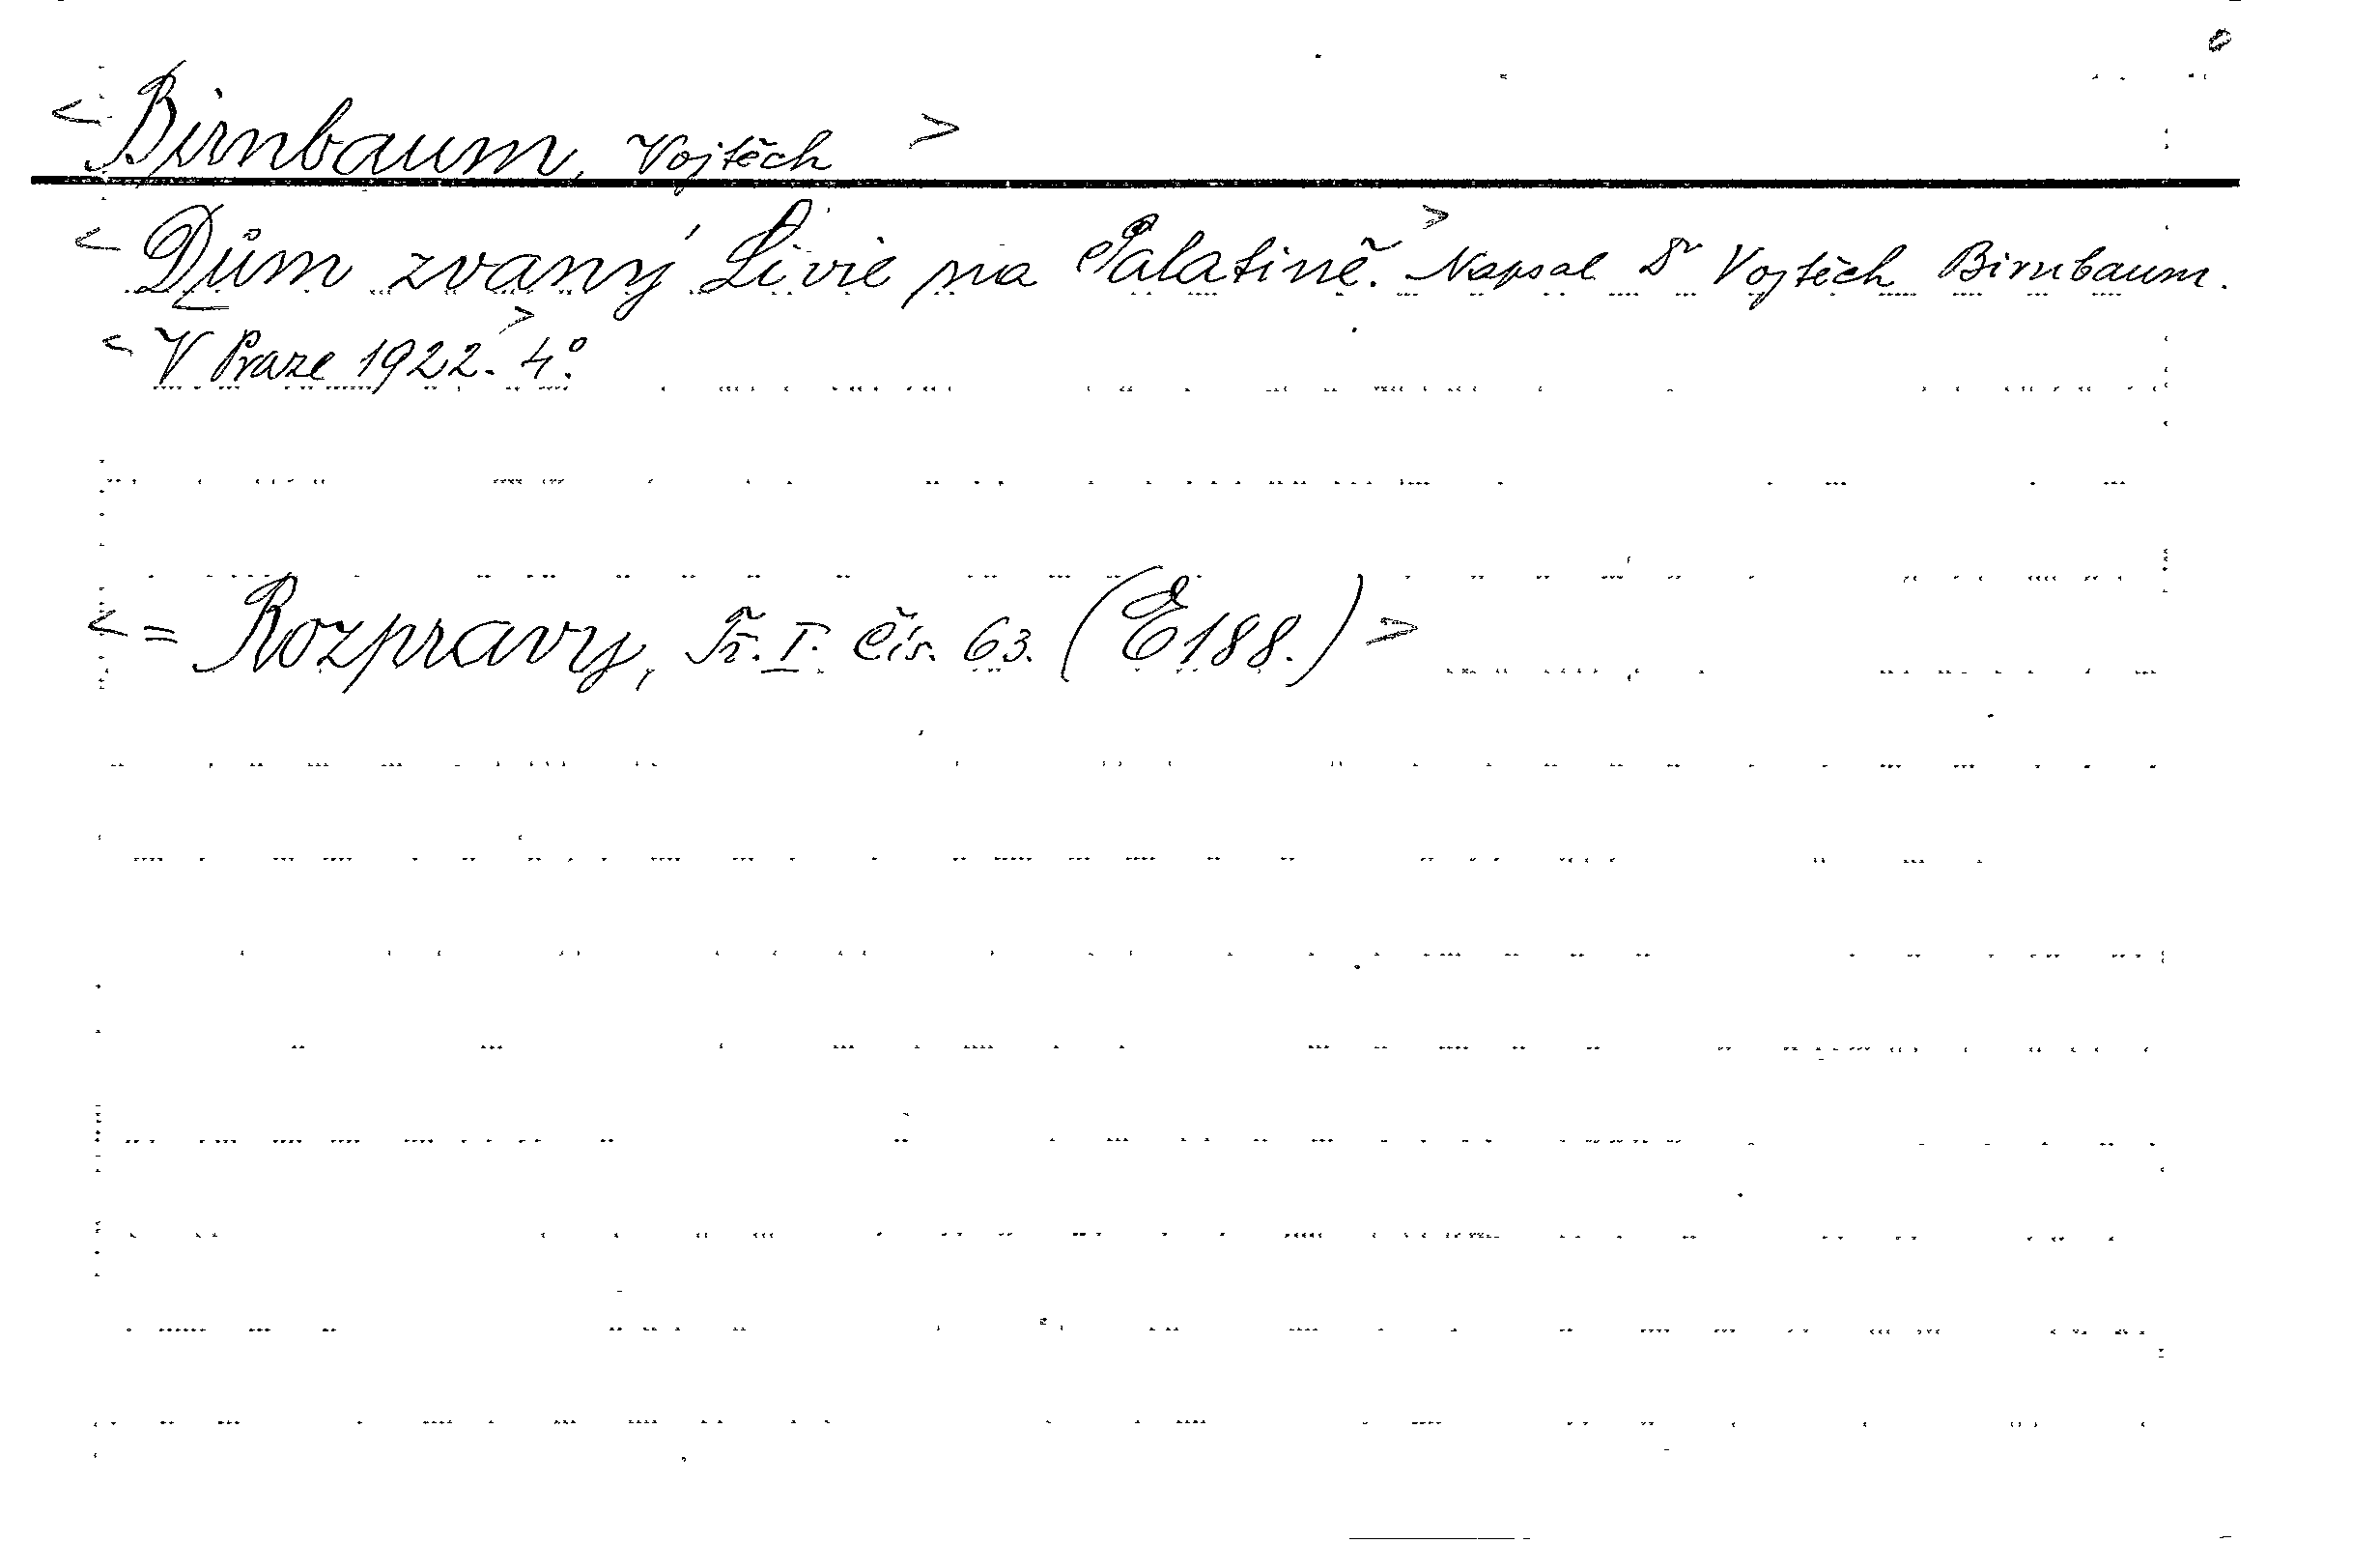 < Birnbaum, Vojtěch >
< Dům zvaný Livie na Palatině. > Napsal Dr Vojtěch Birnbaum.
< V Praze 1922. > 4°.
< = Rozpravy, Tř. I. Čís. 63. (E188.) >